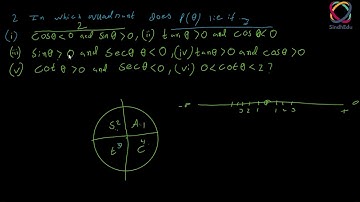 2 In which quadrant does P(θ) lie if
(i) cosθ<0 and sinθ>0, (ii) tanθ>0 and cosθ<0
2
(iii) sinθ>0 and secθ<0, (iv) tanθ>0 and cosθ>0
(v) cotθ>0 and secθ<0, (vi) 0<cotθ<2?
SindhEdu
S2 A.1
t3 C4
3 2 1 1 2 3
+